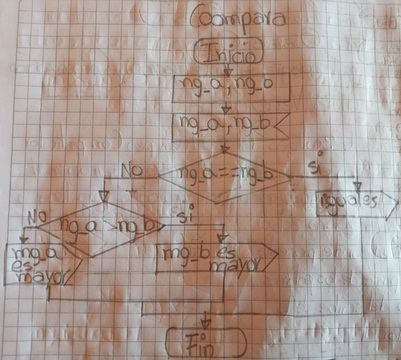 Coompara
Inicio
ng_a, ng_b
ng_a, ng_b
ng_a==ng_b
No
si
iguales
ng_a >ng_b
No
si
mg_a
es
mayor
mg_b es
mayor
Fin